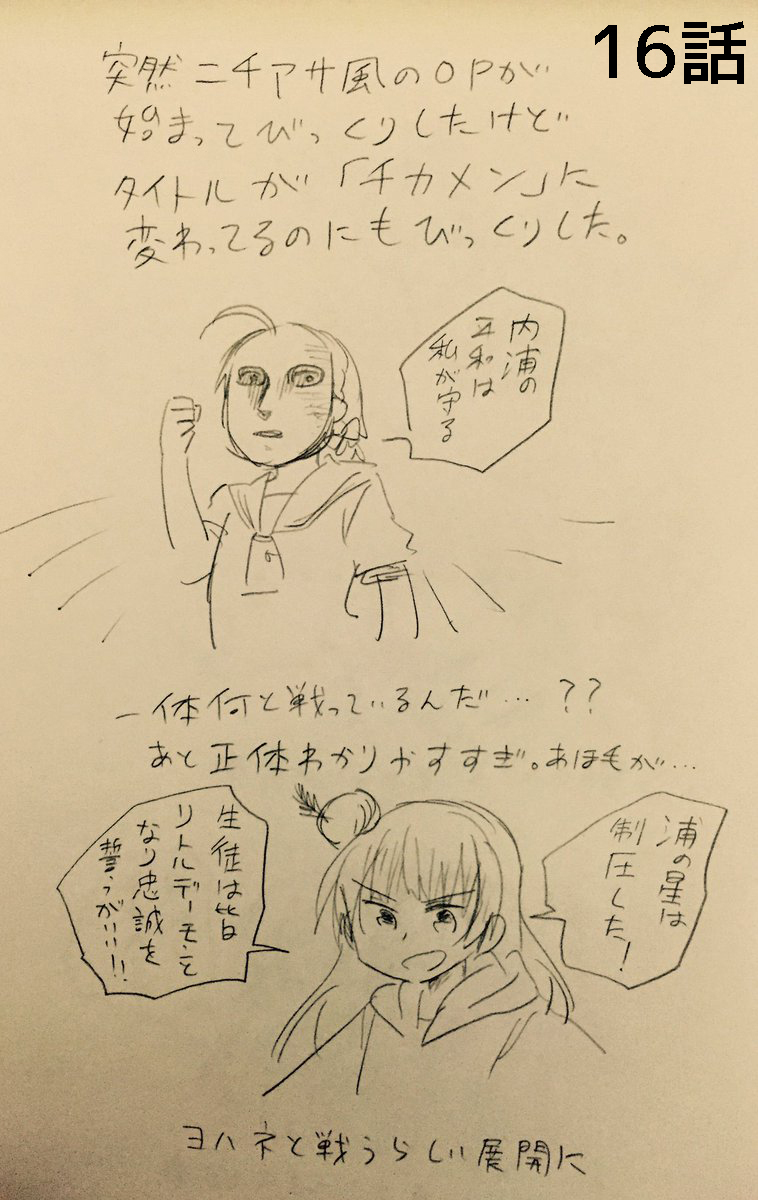 16話
突然ニチアサ風のOPが
始まってびっくりしたけど
タイトルが「チカメン」に
変わってるのにもびっくりした。
内浦の
平和は
私が守る
一体何と戦っているんだ…??
あと正体わかりやすすぎ。あほ毛が…
浦の星は
制圧した!
生徒は皆
リトルデーモンと
なり忠誠を
誓うがいい!!
ヨハネと戦うらしい展開に